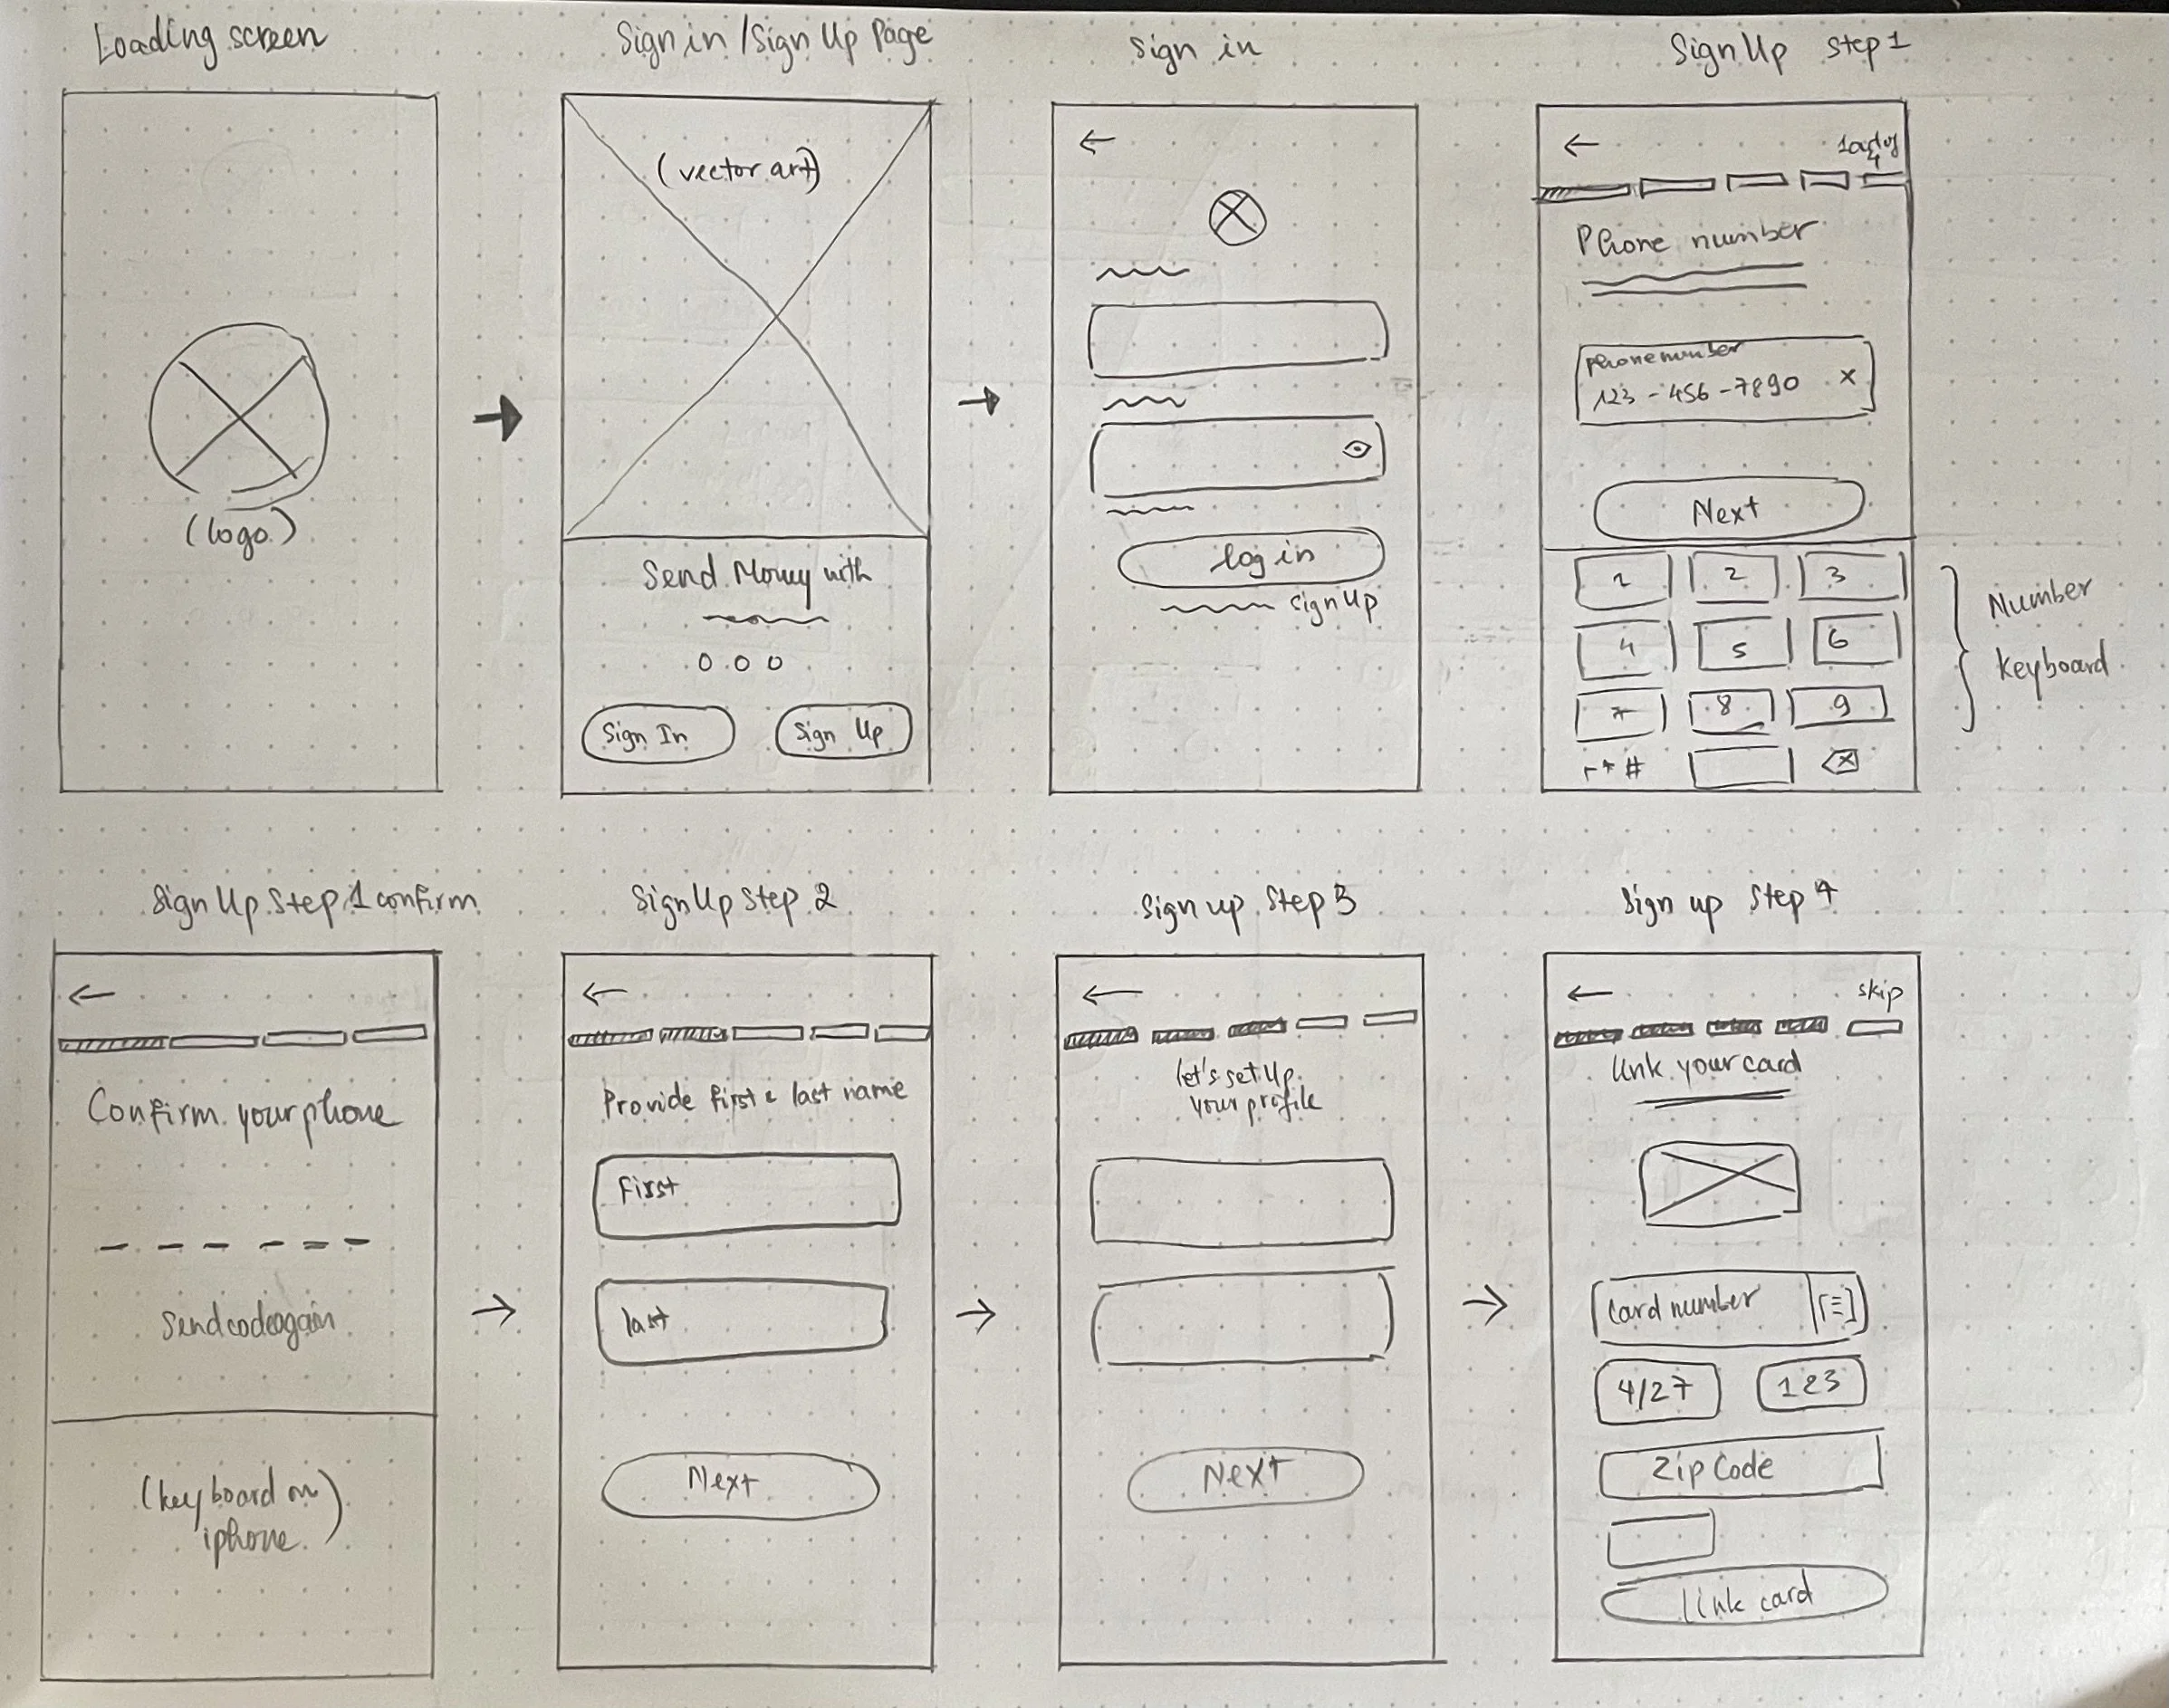 Loading screen
Sign in / Sign Up Page
Sign in
Sign Up Step 1
(logo)
(vector art)
Send Money with
Sign In
Sign Up
log in
sign Up
Phone number
phone number
123 - 456 - 7890 x
Next
1 2 3
4 5 6
7 8 9
+ * #
Number
keyboard
Sign Up Step 1 confirm
Sign Up Step 2
Sign up Step 3
Sign up Step 4
Confirm your phone
Send code again
(keyboard on
iphone)
Provide first & last name
First
last
Next
let's set Up
your profile
Next
skip
link your card
Card number
4/27
123
Zip Code
link card